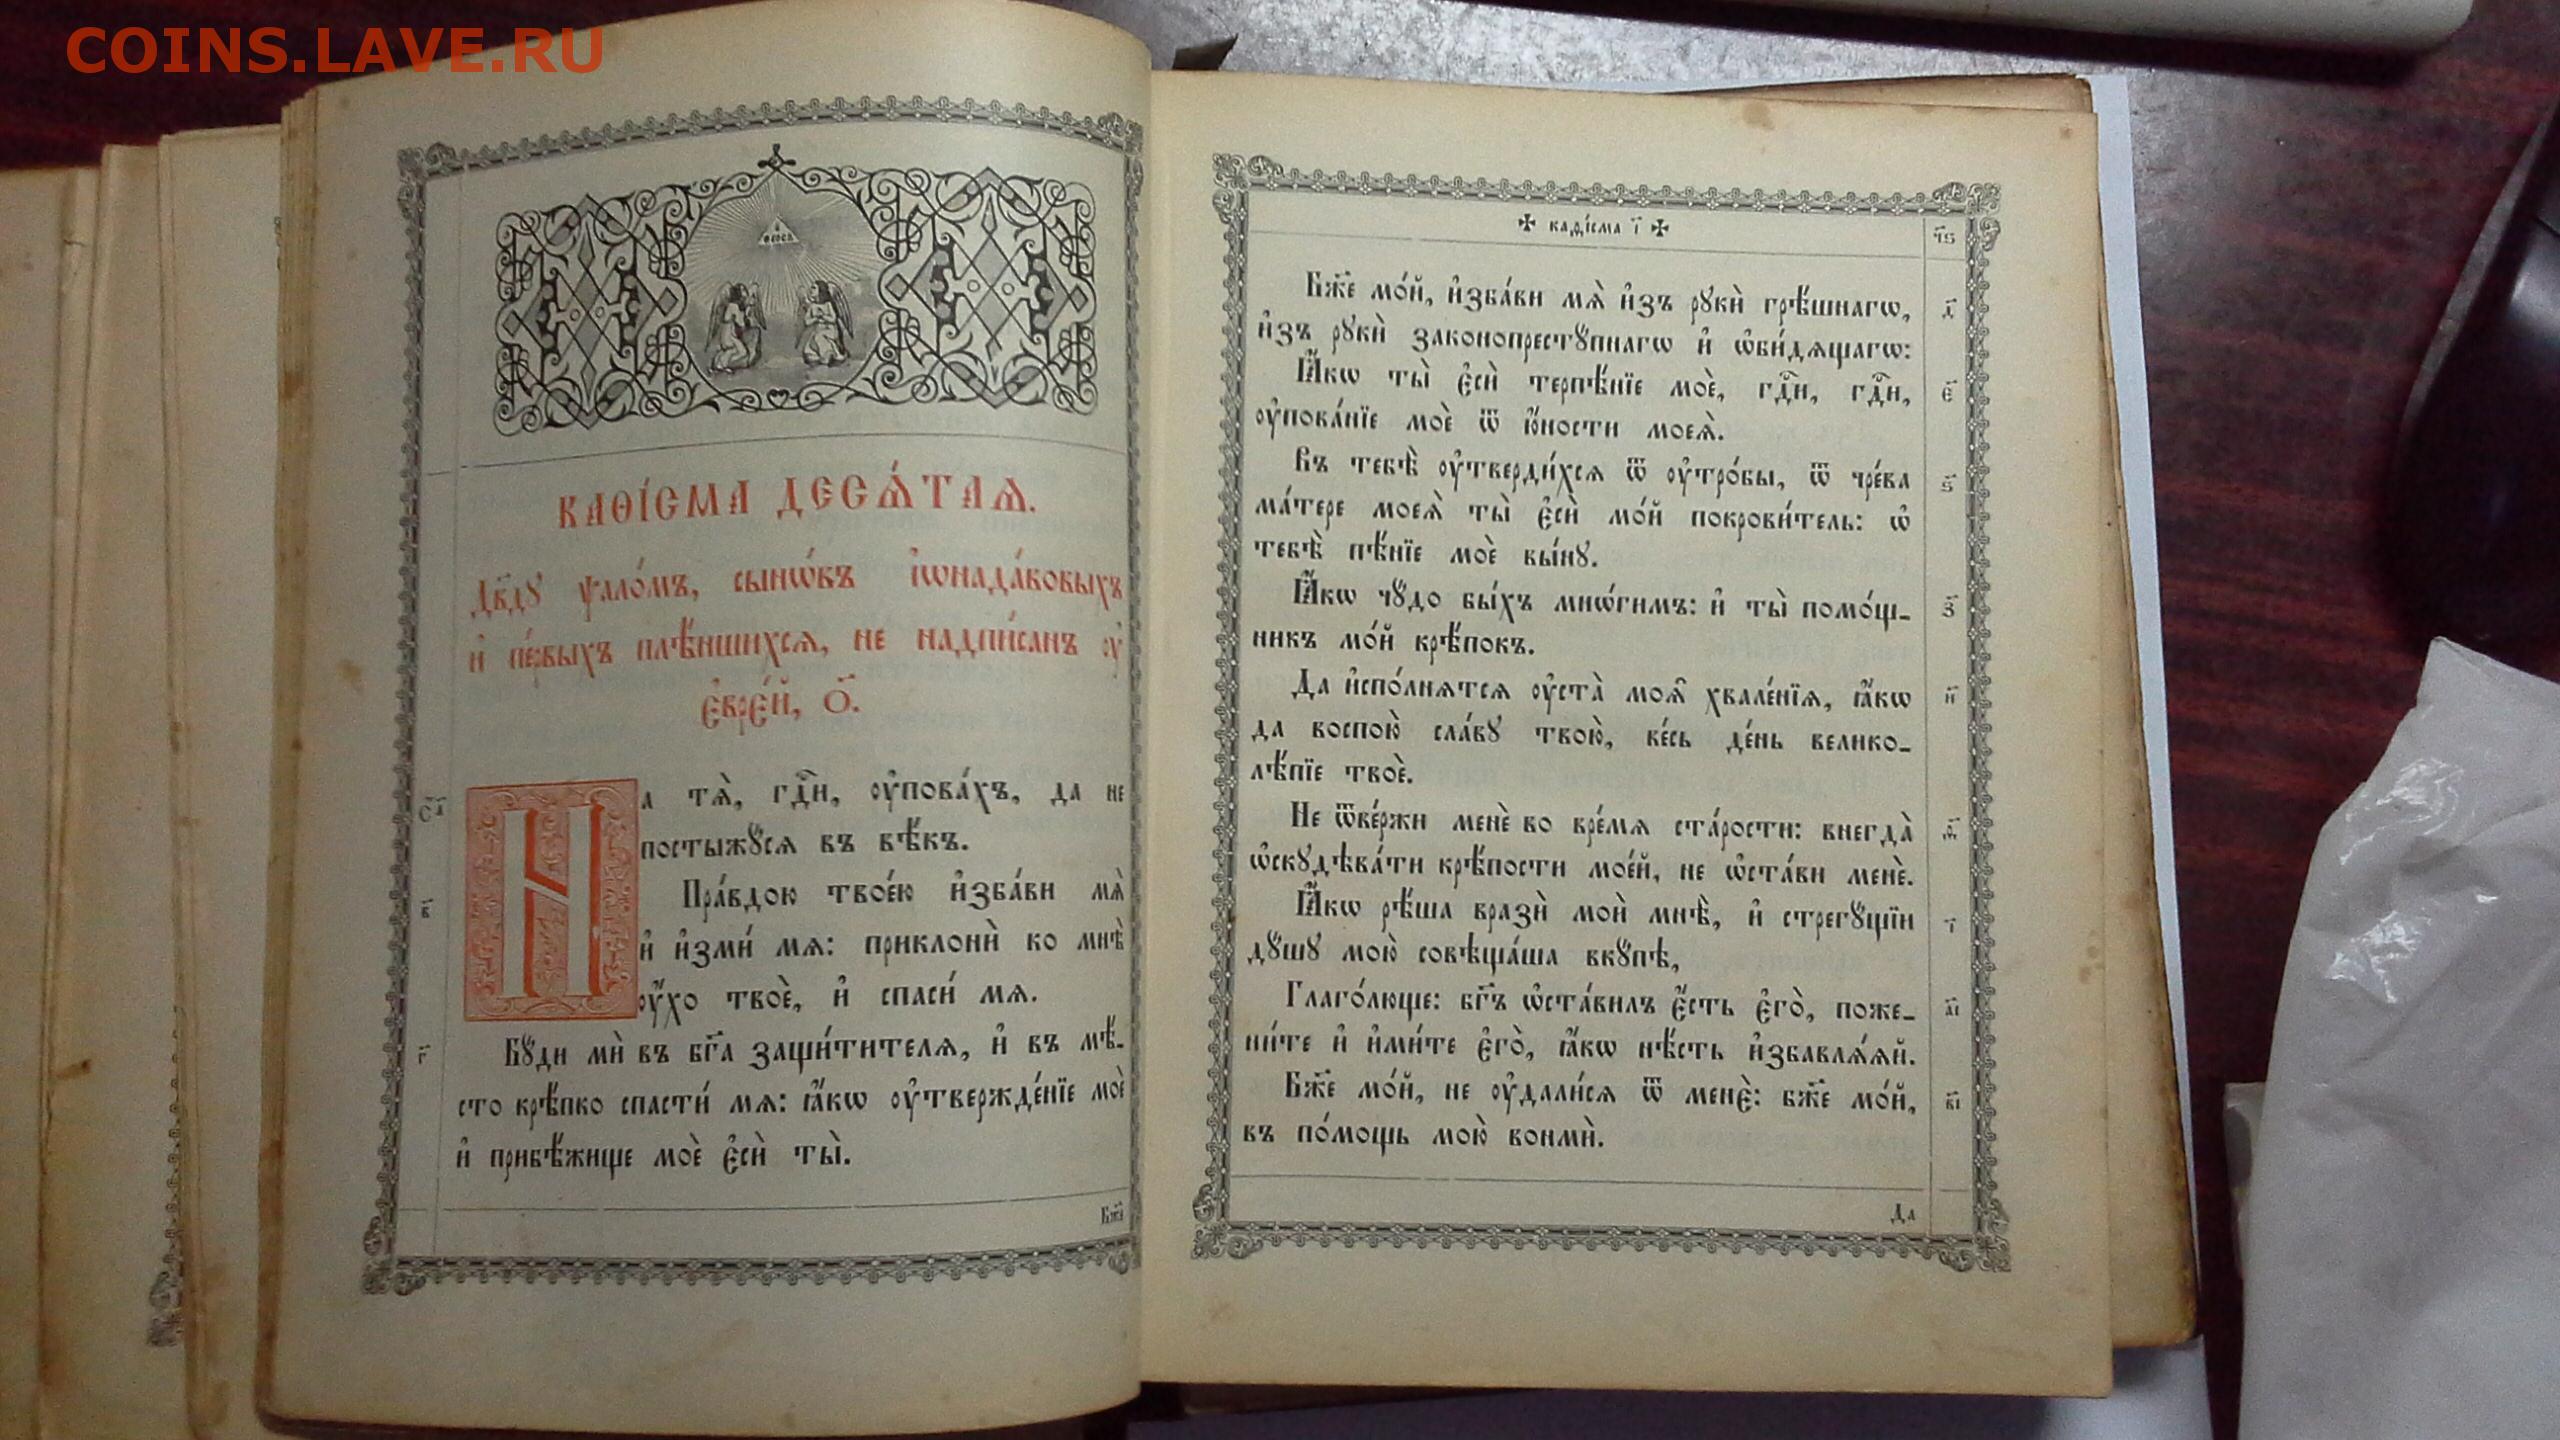 COINS.LAVE.RU
КАѲІ́СМА ДЕСѦ́ТАѦ.
Дв҃дꙋ ѱало́мъ, сынѡ́въ і҆ѡнада́вовыхъ
и҆ пе́рвыхъ плѣ́ншихсѧ, не надпи́санъ ᲂу҆
є҆вре́й, ѻ҃.
На тѧ̀, гдⷭ҇и, ᲂу҆пова́хъ, да не
постыжꙋ́сѧ въ вѣ́къ.
Пра́вдою твое́ю и҆зба́ви мѧ̀
и҆ и҆зми́ мѧ: приклонѝ ко мнѣ̀
ᲂу҆́хо твоѐ, и҆ спаси́ мѧ.
Бꙋ́ди мѝ въ бг҃а защи́тителѧ, и҆ въ мѣ́-
сто крѣ́пко спасти́ мѧ: ꙗ҆́кѡ ᲂу҆твержде́нїе моѐ
и҆ прибѣ́жище моѐ є҆сѝ ты̀.
г҃
Бж҃е
✠ каѳі́сма і҃ ✠
ч҃ѕ
Бж҃е мо́й, и҆зба́ви мѧ̀ и҆зъ рꙋкѝ грѣ́шнагѡ,
д҃
и҆зъ рꙋкѝ законопрестꙋ́пнагѡ и҆ ѡ҆би́дѧщагѡ:
Ꙗ҆́кѡ ты̀ є҆сѝ терпѣ́нїе моѐ, гдⷭ҇и, гдⷭ҇и,
є҃
ᲂу҆пова́нїе моѐ ѿ ю҆́ности моеѧ̀.
Въ тебѣ̀ ᲂу҆тверди́хсѧ ѿ ᲂу҆тро́бы, ѿ чре́ва
ѕ҃
ма́тере моеѧ̀ ты̀ є҆сѝ мо́й покрови́тель: ѡ҆
тебѣ̀ пѣ́нїе моѐ вы́нꙋ.
Ꙗ҆́кѡ чꙋ́до бы́хъ мнѡ́гимъ: и҆ ты̀ помо́щ-
з҃
никъ мо́й крѣ́покъ.
Да и҆спо́лнѧтсѧ ᲂу҆ста̀ моѧ̑ хвале́нїѧ, ꙗ҆́кѡ
и҃
да воспою̀ сла́вꙋ твою̀, ве́сь де́нь велико-
лѣ́пїе твоѐ.
Не ѿве́ржи менѐ во вре́мѧ ста́рости: внегда̀
ѳ҃
ѡ҆скꙋдѣва́ти крѣ́пости мое́й, не ѡ҆ста́ви менѐ.
Ꙗ҆́кѡ рѣ́ша вразѝ моѝ мнѣ̀, и҆ стрегꙋ́щїи
і҃
дꙋ́шꙋ мою̀ совѣща́ша вкꙋ́пѣ,
Глаго́люще: бг҃ъ ѡ҆ста́вилъ є҆́сть є҆го̀, поже-
а҃і
ни́те и҆ и҆ми́те є҆го̀, ꙗ҆́кѡ нѣ́сть и҆збавлѧ́ѧй.
Бж҃е мо́й, не ᲂу҆дали́сѧ ѿ менє̀: бж҃е мо́й,
в҃і
въ по́мощь мою̀ вонмѝ.
Да